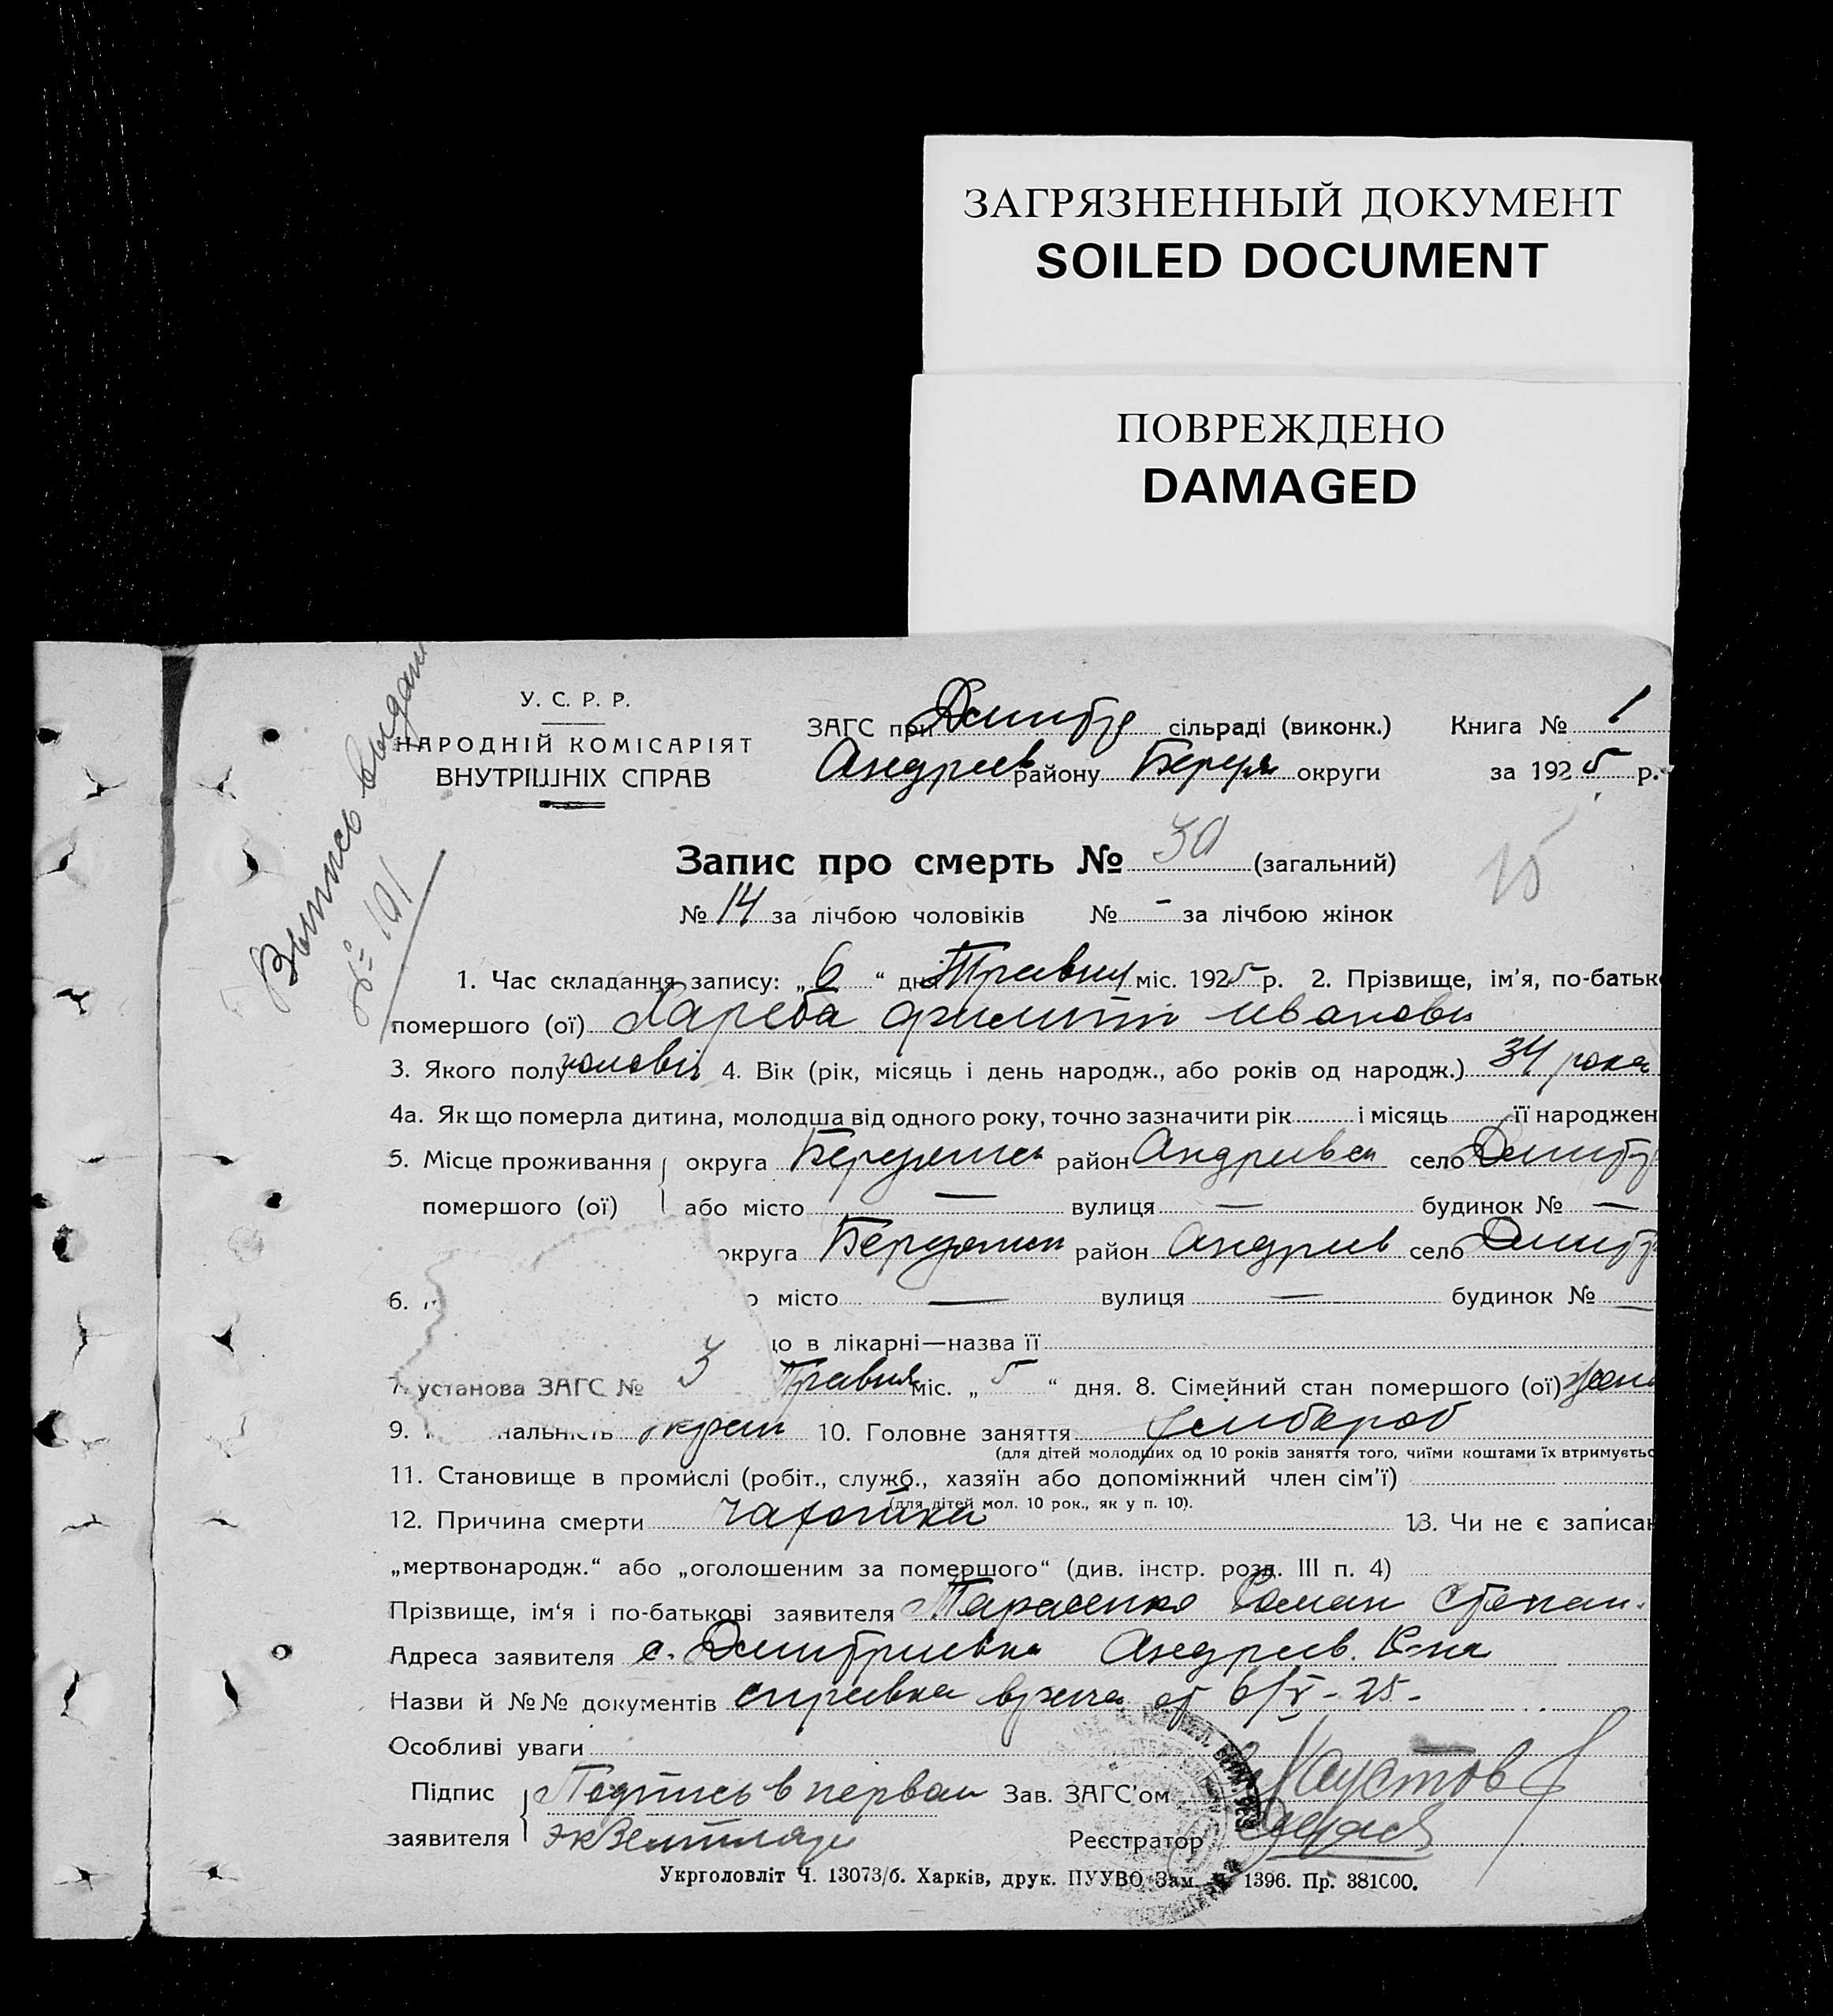 ЗАГРЯЗНЕННЫЙ ДОКУМЕНТ
SOILED DOCUMENT
ПОВРЕЖДЕНО
DAMAGED
Выпись выдан
У. С. Р. Р.
НАРОДНІЙ КОМІСАРІЯТ
ВНУТРІШНІХ СПРАВ
ЗАГС при сільраді (виконк.) Книга № 1
Андриев району округи за 1925 р.
Запис про смерть № 30 (загальний)
15
№ 14 за лічбою чоловіків № - за лічбою жінок
1. Час складання запису: „6“ дн Травня міс. 1925 р. 2. Прізвище, ім'я, по-батьк
помершого (ої) Иванови
3. Якого полу 4. Вік (рік, місяць і день народж., або років од народж.) 34 рока
4а. Як що померла дитина, молодша від одного року, точно зазначити рік і місяць її народжен
5. Місце проживання округа район село
помершого (ої) або місто — вулиця — будинок № —
округа район Андриев село
6. місто — вулиця — будинок № —
о в лікарні—назва її
7. установа ЗАГС № 3 Травня міс. „5“ дня. 8. Сімейний стан помершого (ої)
9. нальність 10. Головне заняття
(для дітей молодщих од 10 років заняття того, чиїми коштами їх втримуєтьс
11. Становище в промислі (робіт., служб., хазяїн або допоміжний член сім'ї)
(для дітей мол. 10 рок., як у п. 10).
12. Причина смерти чахотка 13. Чи не є записан
„мертвонародж.“ або „оголошеним за помершого“ (див. інстр. розд. III п. 4)
Прізвище, ім'я і по-батькові заявителя Тарасенко Роман Степан.
Адреса заявителя с. Дмитриевка Андриев. Р-на
Назви й №№ документів справка врача от 6/V-25-
Особливі уваги
Підпис Подпись в первом Зав. ЗАГС'ом Хаустов
заявителя экземпляре Реєстратор
Укрголовліт Ч. 13073/б. Харків, друк. ПУУВО Зам. Ч. 1396. Пр. 381000.